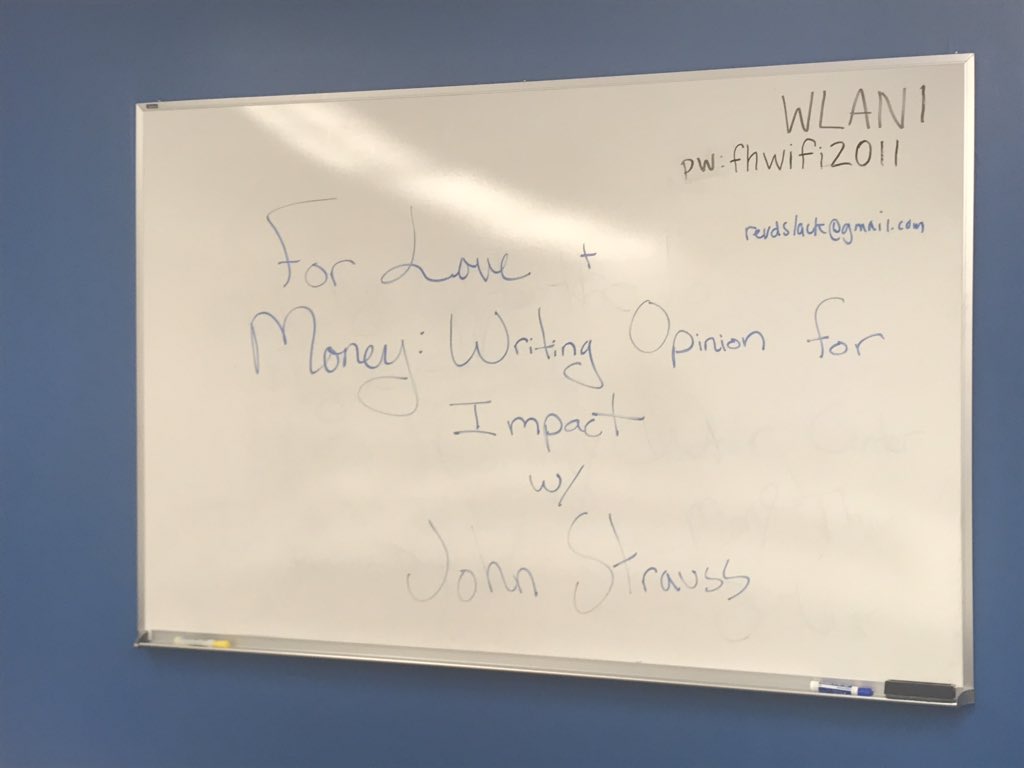 WLAN1
pw: fhwifi2011
revdslack@gmail.com
For Love +
Money: Writing Opinion for
Impact
w/
John Strauss